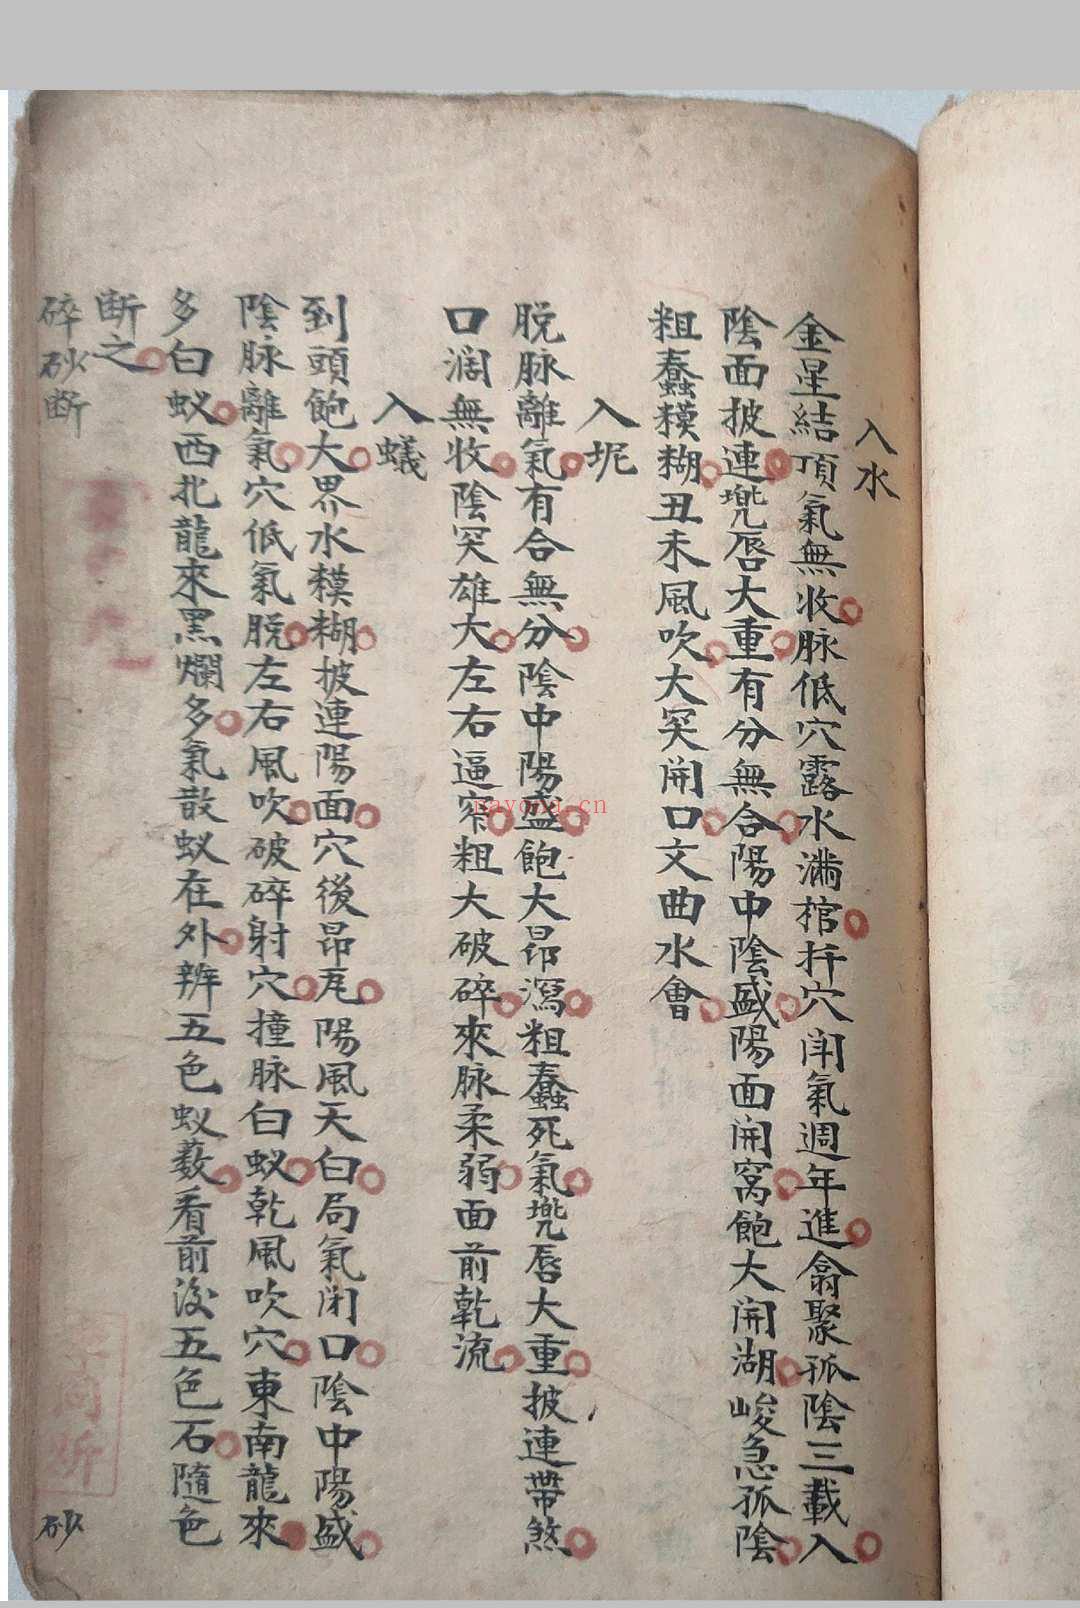 入水
金星結頂氣無收脉低穴露水滿棺扦穴閗氣週年進翕聚孤陰三載入
陰面披連兠唇大重有分無合陽中陰盛陽面開窝飽大開湖峻急孤陰
粗蠢糢糊丑未風吹大突開口文曲水會
入坭
脱脉離氣有合無分陰中陽盛飽大昂瀉粗蠢死氣兠唇大重披連帶煞
口濶無收陰突雄大左右逼窄粗大破碎來脉柔弱面前乾流
入蟻
到頭飽大界水糢糊披連陽面穴後昂尾陽風天白局氣闭口陰中陽盛
陰脉離氣穴低氣脱左右風吹破碎射穴撞脉白蚁乾風吹穴東南龍來
多白蚁西北龍來黑爛多氣散蚁在外辨五色蚁薮看前後五色石隨色
断之
碎砂断
砂
nayong.cn